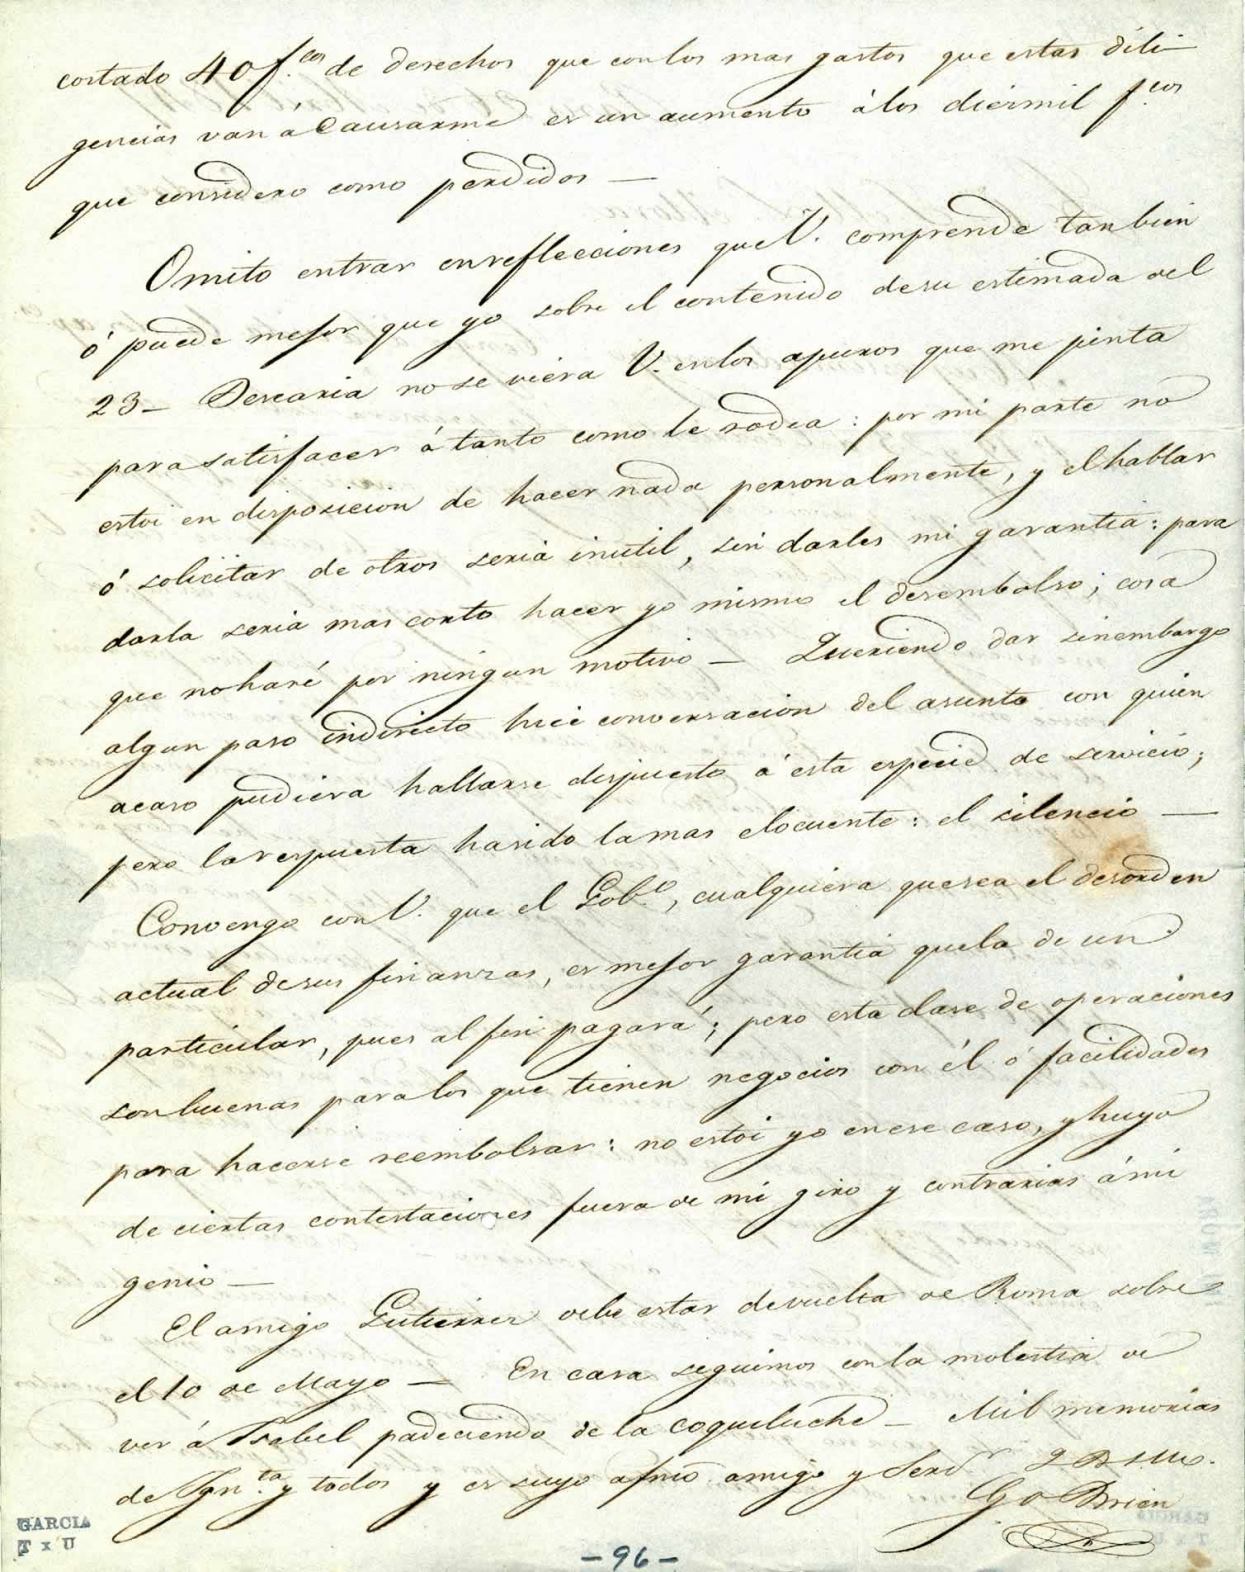 costado 40 f.cos de derechos que con los mas gastos que estas dili-
gencias van á Causarme es un aumento á los diez mil f.cos
que considero como perdidos —
Omito entrar en reflecciones que V. comprende tambien
ó puede mejor que yo sobre el contenido de su estimada del
23 — Desearia no se viera V. en los apuros que me pinta
para satisfacer á tanto como le rodea: por mi parte no
estoi en disposicion de hacer nada personalmente, y el hablar
ó solicitar de otros seria inutil, sin darles mi garantia: para
darla seria mas corto hacer yo mismo el desembolso; cosa
que no haré por ningun motivo — Queriendo dar sinembargo
algun paso indirecto hice conversacion del asunto con quien
acaso pudiera hallarse dispuesto á esta especie de servicio;
pero la respuesta ha sido la mas elocuente: el silencio —
Convengo con V. que el Gob.o, cualquiera que sea el desorden
actual de sus finanzas, es mejor garantia que la de un
particular, pues al fin pagará; pero esta clase de operaciones
son buenas para los que tienen negocios con él ó facilidades
para hacerse reembolsar: no estoi yo en ese caso, y huyo
de ciertas contestaciones fuera de mi giro y contrarias á mi
genio —
El amigo Gutierrez debe estar de vuelta de Roma sobre
el 10 de Mayo — En casa seguimos con la molestia de
ver á Isabel padeciendo de la coqueluche — Mil memorias
de y todos y es suyo afmo amigo y Serv.r Q B S M.
G O Brien
GARCIA
T x U
- 96 -